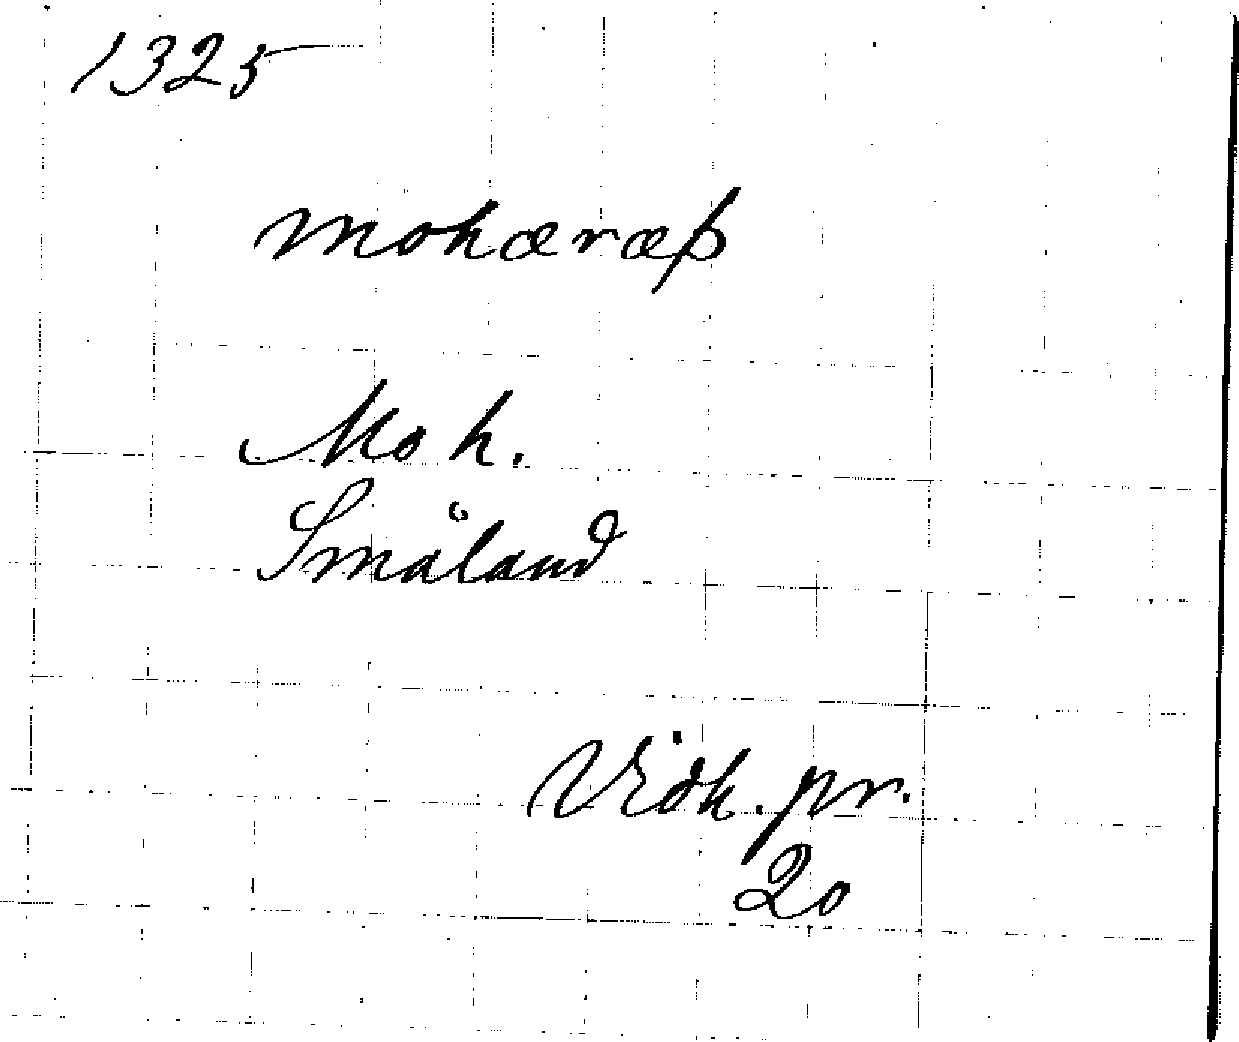 1325
mohæræþ
Mo h.
Småland
Vidh. pr.
20